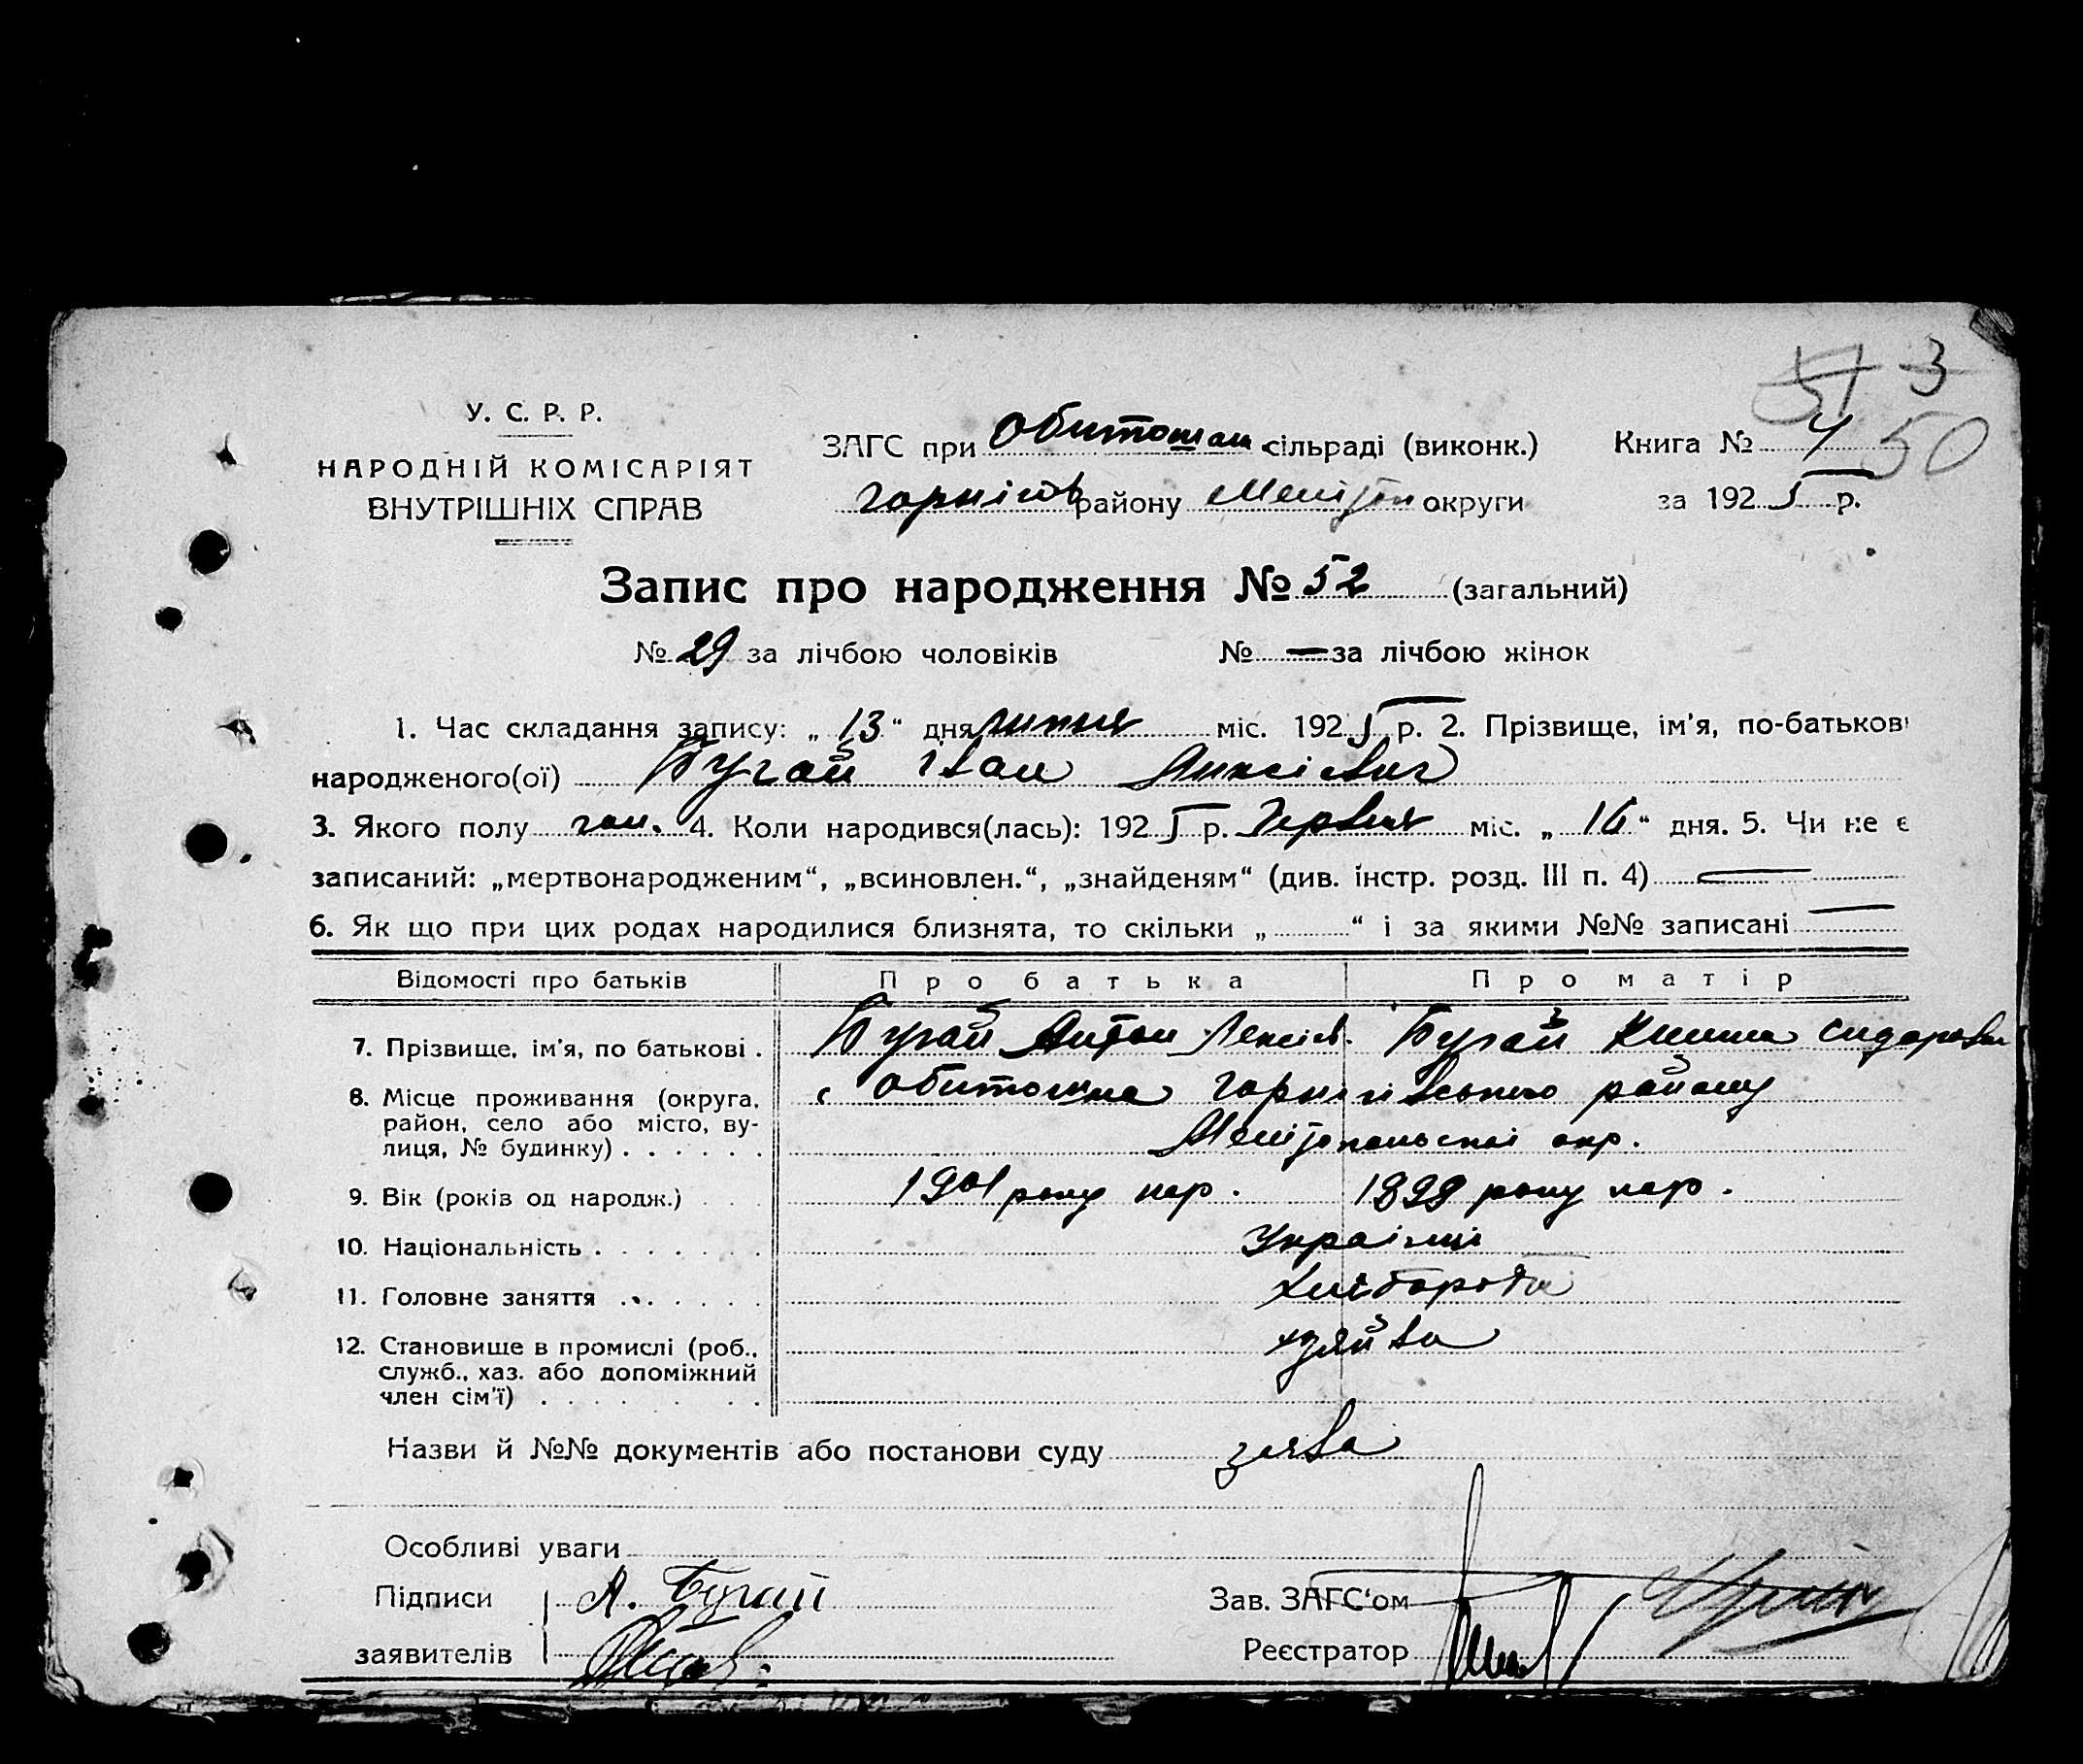 51 3
50
У. С. Р. Р.
НАРОДНІЙ КОМІСАРІЯТ
ВНУТРІШНІХ СПРАВ
ЗАГС при Обиточан сільраді (виконк.) Книга № 4
району округи за 1925 р.
Запис про народження № 52 (загальний)
№ 29 за лічбою чоловіків № — за лічбою жінок
1. Час складання запису: „ 13 “ дня липня міс. 1925 р. 2. Прізвище, ім'я, по-батькові
народженого(ої) Бугай Іван
3. Якого полу чол. 4. Коли народився(лась): 1925 р. Червня міс. „ 16 “ дня. 5. Чи не є
записаний: „мертвонародженим“, „всиновлен.“, „знайденям“ (див. інстр. розд. III п. 4) —
6. Як що при цих родах народилися близнята, то скільки „ “ і за якими №№ записані —
Відомості про батьків Про батька Про матір
7. Прізвище, ім'я, по батькові . Бугай Антон Лексів. Бугай
8. Місце проживання (округа, район, село або місто, вулиця, № будинку) . . . . . . с Обиточна району
окр.
9. Вік (років од народж.) . . . 1901 року нар. 1898 року нар.
10. Національність . . . . . . Українці
11. Головне заняття . . . . . . Хлібороби
12. Становище в промислі (роб., служб., хаз. або допоміжний член сім'ї) . . . . . . хзяйва
Назви й №№ документів або постанови суду заява
Особливі уваги
Підписи А. Бугай Зав. ЗАГС'ом
заявителів Реєстратор